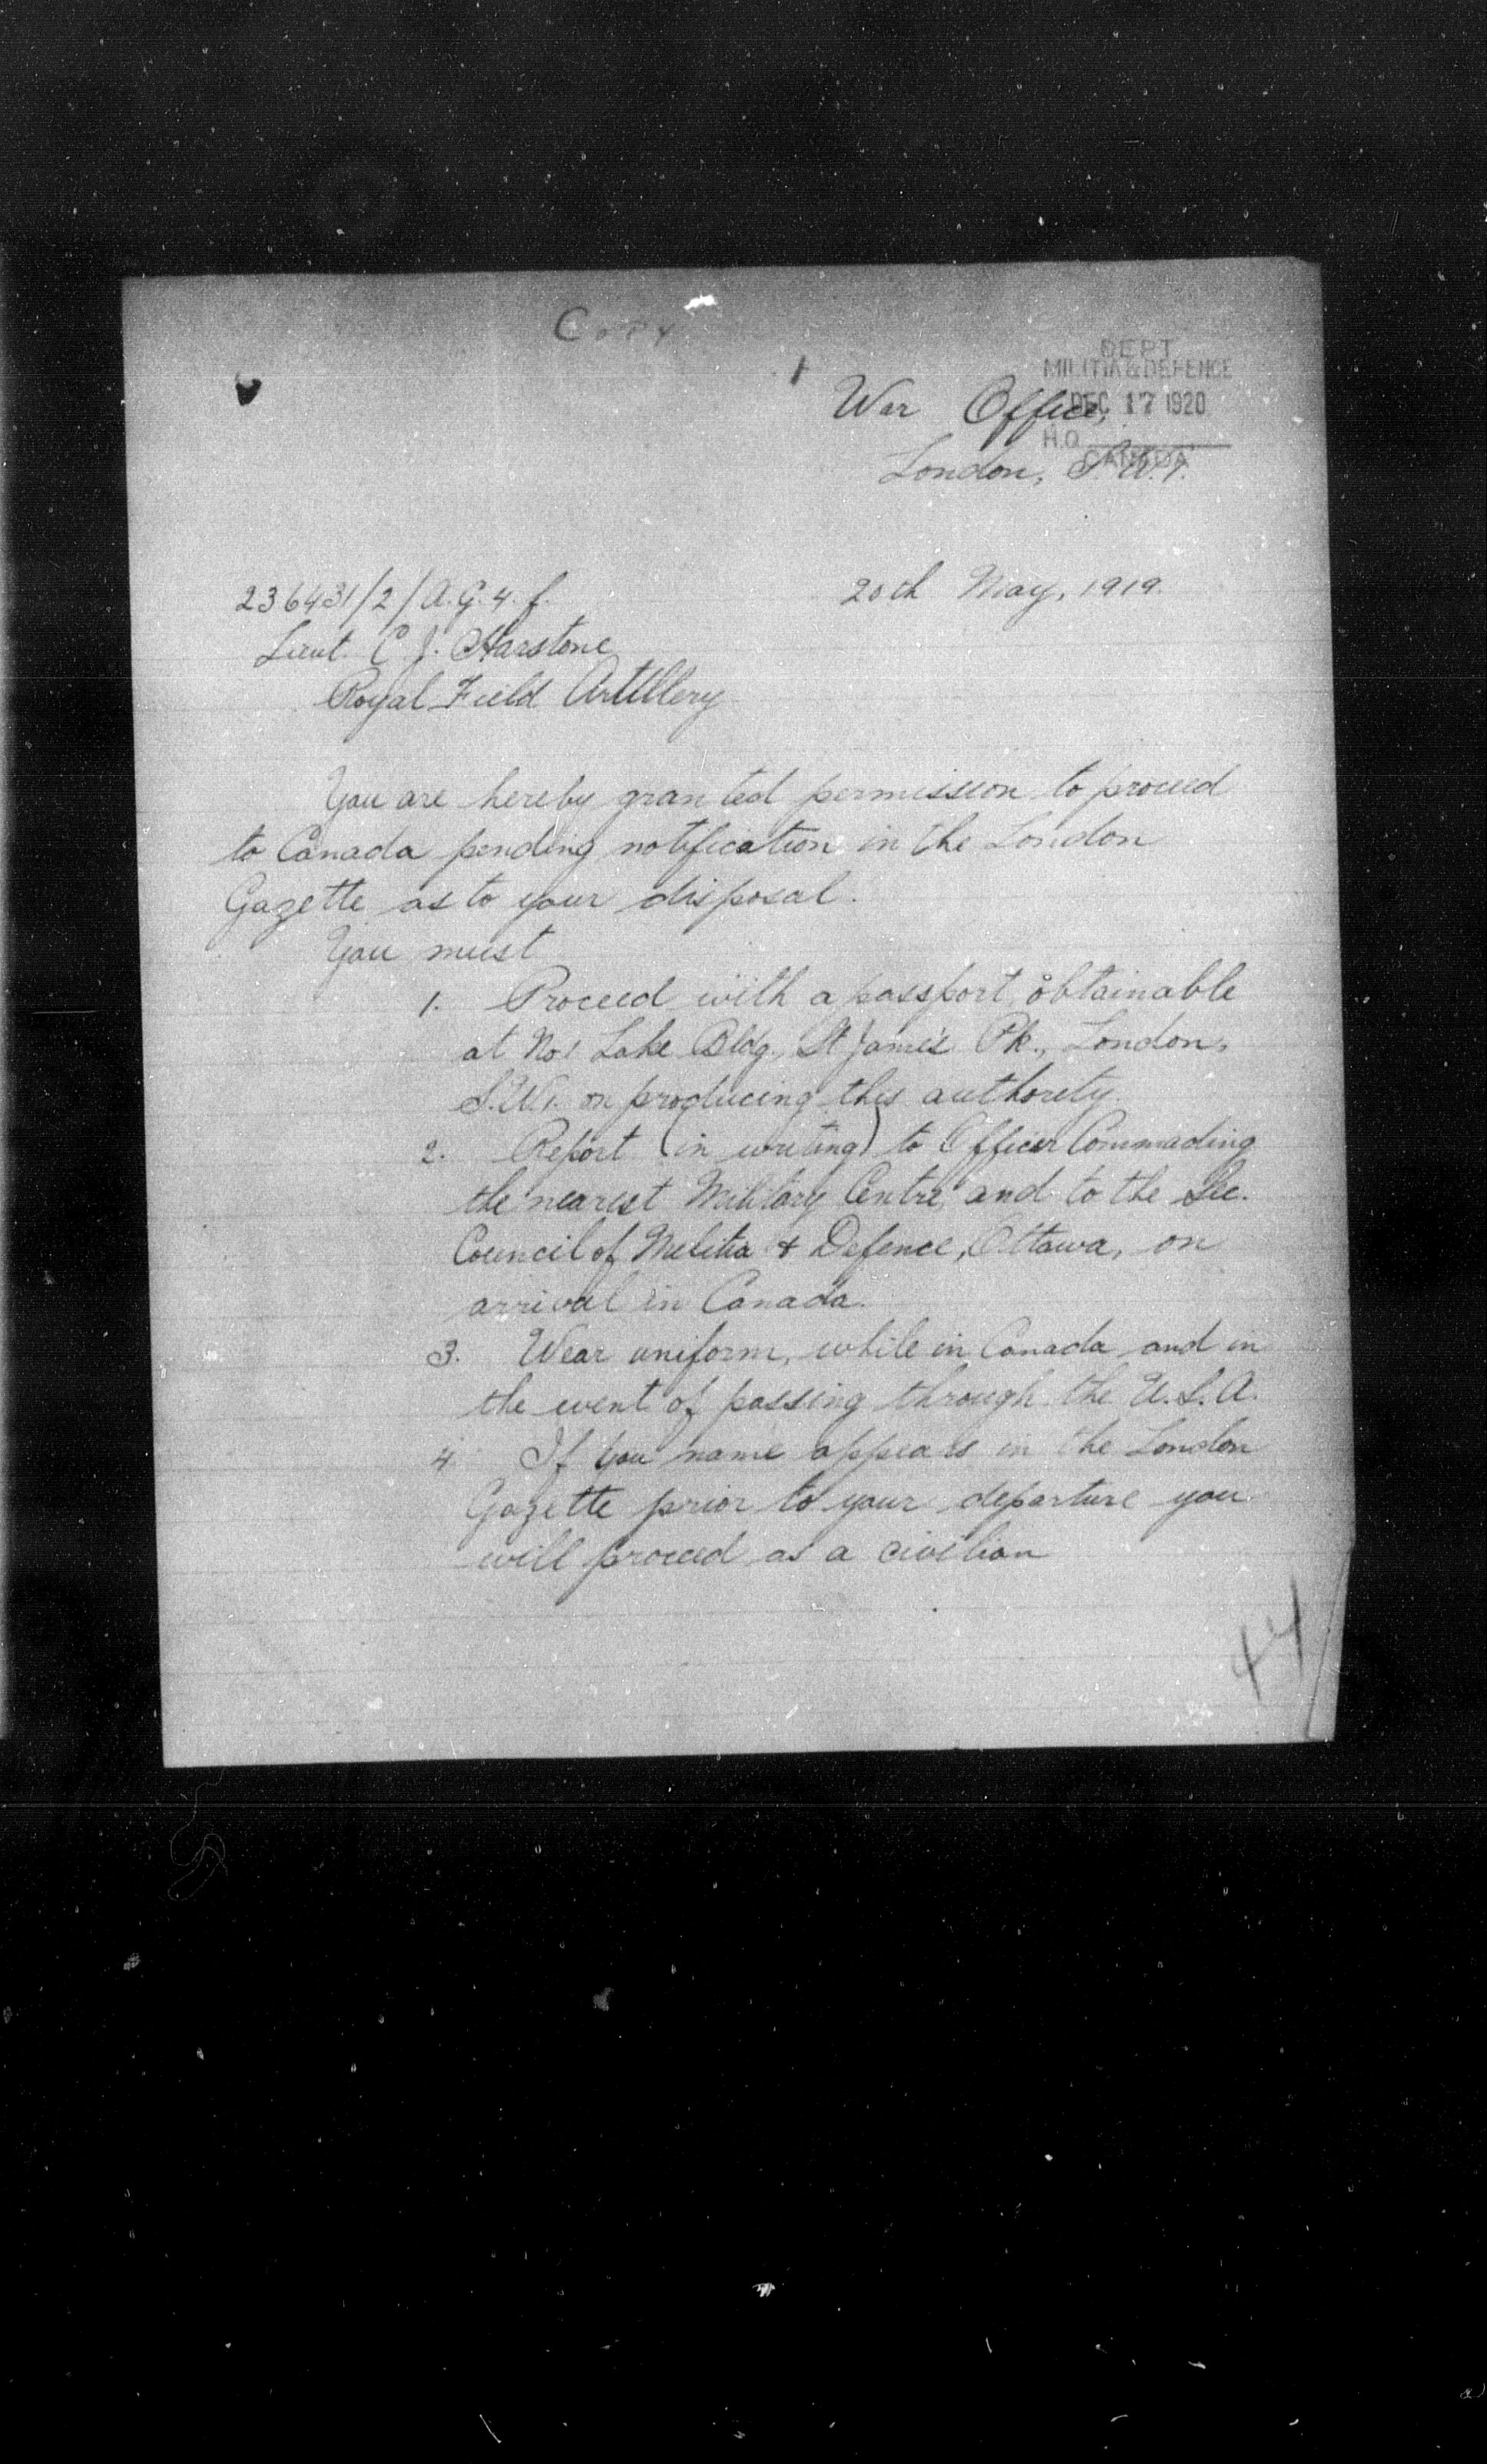 Copy
DEPT.
MILITIA & DEFENCE
DEC 17 1920
H.Q.
CANADA
War Office,
London, S.W.1.
20th May, 1919.
236431/2/A.G.4.f.
Lieut. C. J. Harstone
Royal Field Artillery
You are hereby granted permission to proceed
to Canada pending notification in the London
Gazette as to your disposal.
You must
1. Proceed with a passport, obtainable
at No 1 Lake Bldg., St James's Pk., London,
S.W.1. on producing this authority.
2. Report (in writing) to Officer Commading
the nearest Military Centre, and to the Sec.
Council of Militia & Defence, Ottawa, on
arrival in Canada.
3. Wear uniform, while in Canada and in
the event of passing through the U.S.A.
4 If you name appears in the London
Gazette prior to your departure you
will proceed as a civilian
44